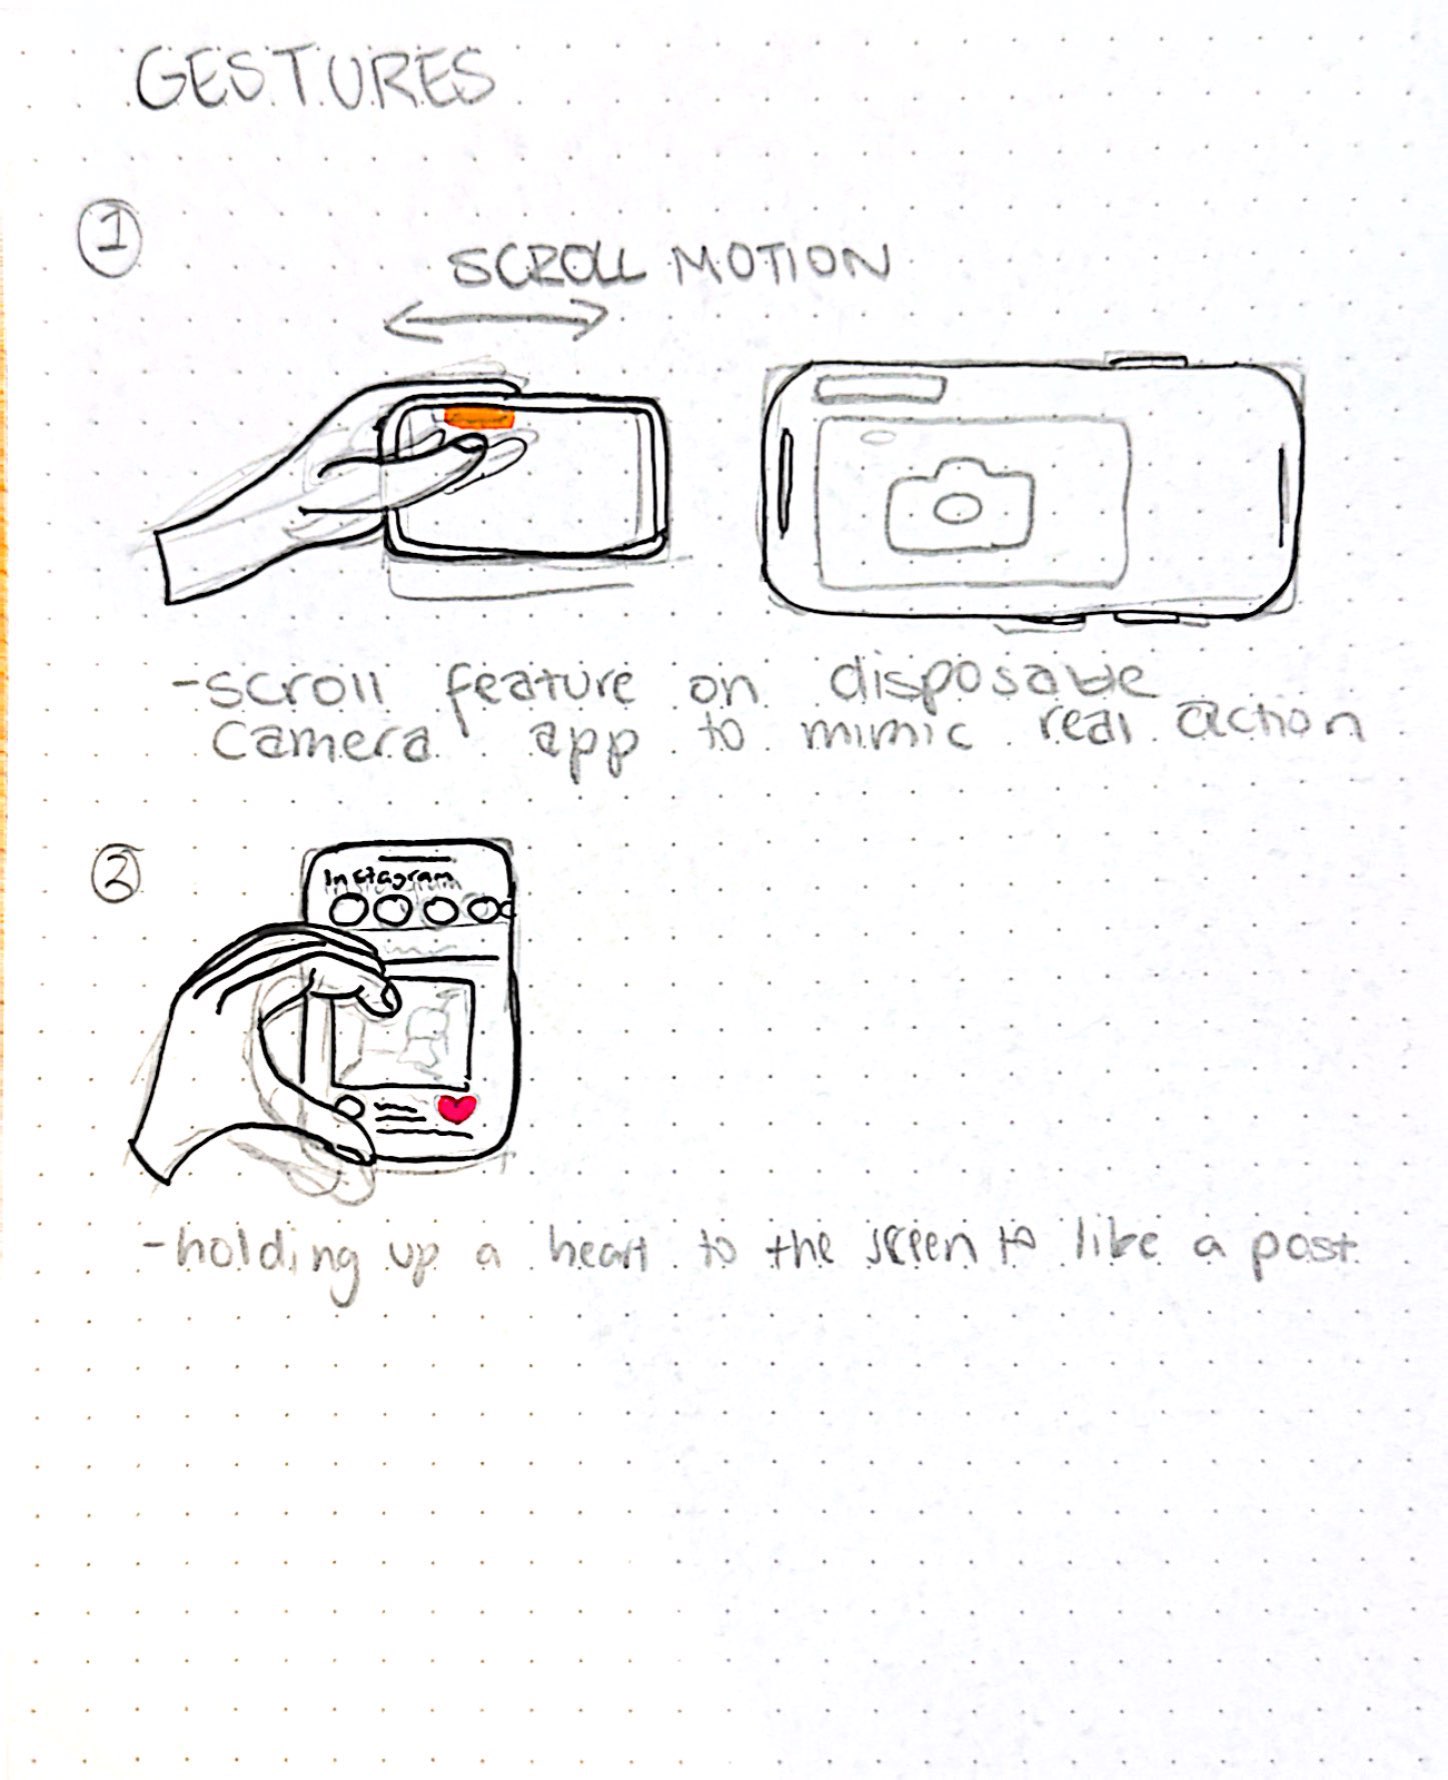 GESTURES
1
SCROLL MOTION
-scroll feature on disposable
camera app to mimic real action
2
Instagram
-holding up a heart to the screen to like a post